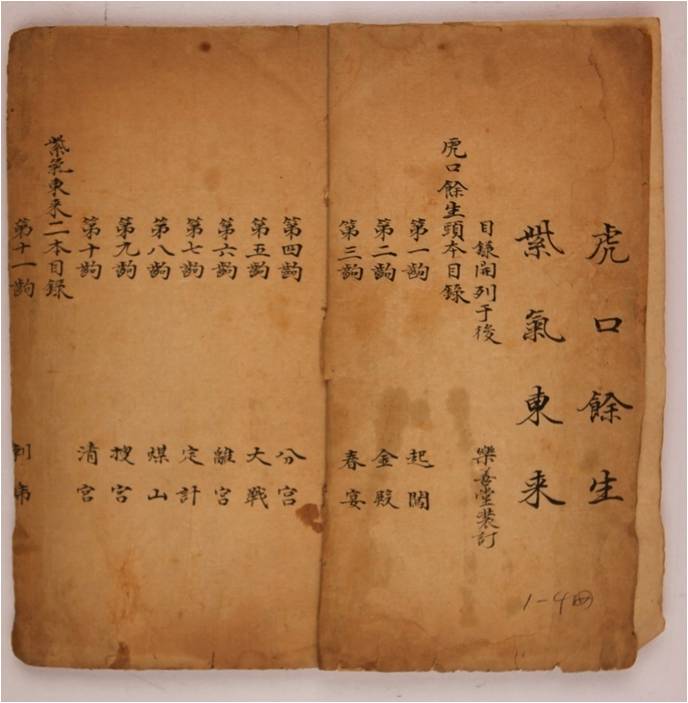 虎口餘生
紫氣東来
目錄開列于後 樂善堂裝訂
虎口餘生頭本目錄
第一齣 起闖
第二齣 金殿
第三齣 春宴
第四齣 分宮
第五齣 大戰
第六齣 離宮
第七齣 定計
第八齣 煤山
第九齣 搜宮
第十齣 清宮
紫氣東来二本目錄
第十一齣
1-4冊